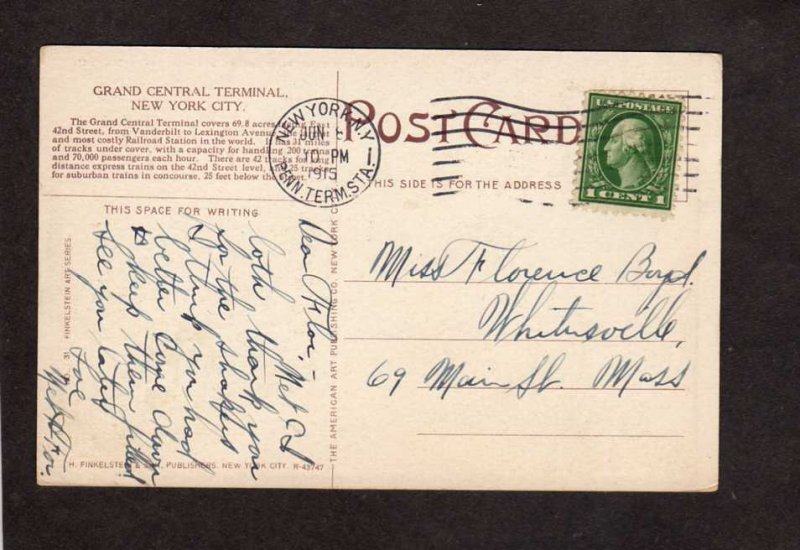 GRAND CENTRAL TERMINAL,
NEW YORK CITY.
The Grand Central Terminal covers 69.8 acres East
42nd Street, from Vanderbilt to Lexington Avenue
and most costly Railroad Station in the world. It has 31 miles
of tracks under cover, with a capacity for handling 200 trains
and 70,000 passengers each hour. There are 42 tracks for long
distance express trains on the 42nd Street level, and 25 tracks
for suburban trains in concourse, 25 feet below the
NEW YORK, N.Y.
JUN 8
10 PM
1915
PENN. TERM. STA.
POST CARD
THIS SIDE IS FOR THE ADDRESS
U.S. POSTAGE
1 CENT 1
THIS SPACE FOR WRITING
Dear Flor, - Met & I
both thank you
for the shakes
I think you had
better come down
& keep them filled
See you later
Love
Met & Flor.
Miss Florence Boyd.
Whitinsville,
69 Main St. Mass
31 FINKELSTEIN ART SERIES
THE AMERICAN ART PUBLISHING CO. NEW YORK C
H. FINKELSTEIN & SON, PUBLISHERS, NEW YORK CITY. R-43747